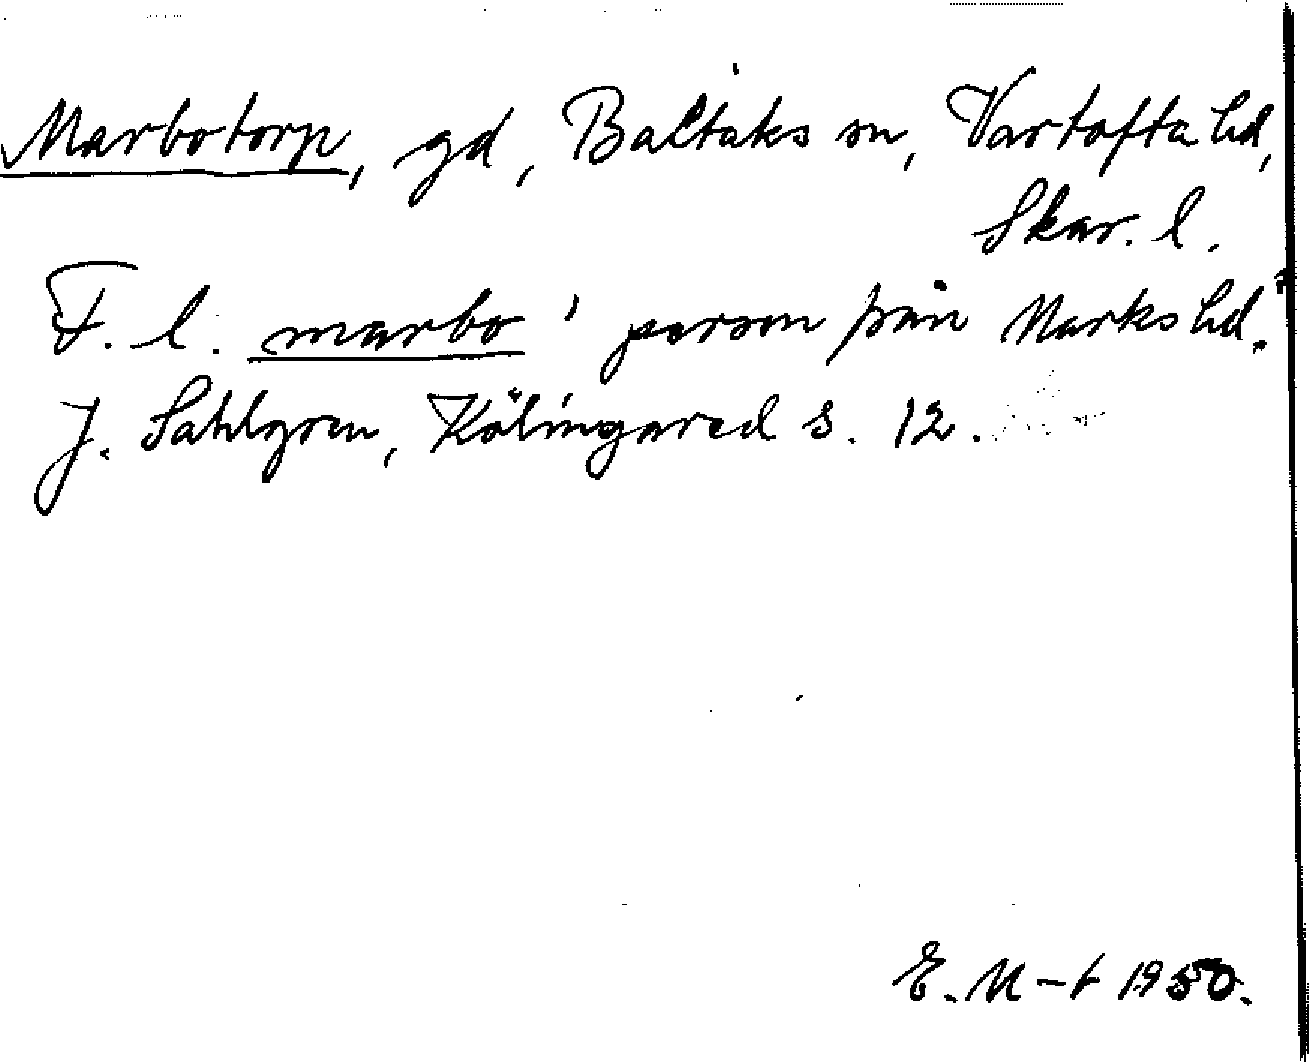 Marbotorp, gd, Baltaks sn, Vartofta hd,
Skar. l.
F. l. marbo 'person från Marks hd.'
J. Sahlgren, Kölingared s. 12.
E. M-t 1950.